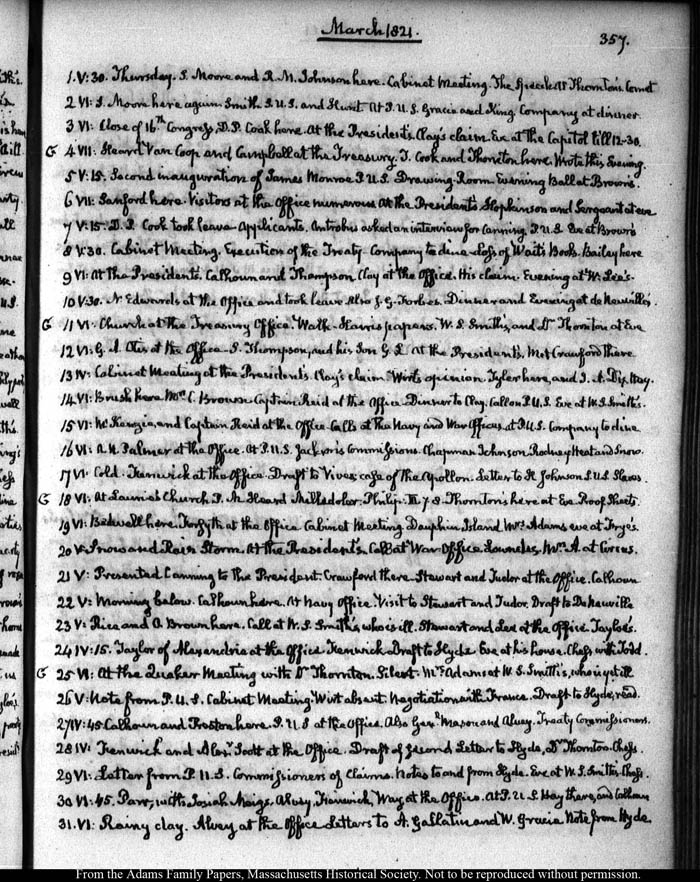 March 1821.
357.
1. V:30. Thursday. S. Moore and R. M. Johnson here. Cabinet Meeting. The Speech At Thornton's. Comet
2 VI: S. Moore here again. Smith S.U.S. and Hunt At P.U.S. Gracie and King. Company at dinner.
3 VI: Close of 16th Congress. D.P. Cook here. At the President's. Clay's claim. Eve at the Capitol till 12-30.
G 4 VII: Heard Van Coop and Campbell at the Treasury. T. Cook and Thornton here. Wrote this Evening.
5 V:15. Second inauguration of James Monroe P.U.S. Drawing Room Evening Ball at Brown's.
6 VII: Sanford here. Visitors at the Office numerous At the President's Hopkinson and Sergeant at eve
7 V:15. D.P. Cook took leave. Applicants. Antrobus asked an interview for Canning. P.U.S. Eve at Brown's
8 V:30. Cabinet Meeting. Execution of the Treaty. Company to dine. Loss of Wait's Books. Bailey here
9 VI: At the President's. Calhoun and Thompson. Clay at the Office. His claim. Evening at W. Lee's.
10 V:30. N. Edwards at the Office and took leave. Also J. G. Forbes. Dinner and Evening at de Neuville's.
G 11 VI: Church at the Treasury Office. Walk. Harris papers. W. S. Smith's, and Dr. Thornton at Eve
12 VI: G. A. Otis at the Office. S. Thompson, and his Son G. L. At the President's. Met Crawford there.
13 IV: Cabinet Meeting at the President's. Clay's claim. Wirt's opinion. Tyler here, and J. A. Dix. Hay.
14 VI: Brush here Mrs. C. Brown. Captain Reid at the Office. Dinner to Clay. Call on P.U.S. Eve at W. S. Smith's.
15 VI: McKenzie, and Captain Reid at the Office. Calls at the Navy and War Offices, at P.U.S. Company to dine
16 VI: A. H. Palmer at the Office. At P.U.S. Jackson's Commissions. Chapman Johnson. Rodney Heat and Snow.
17 VI: Cold. Fenwick at the Office. Draft to Vives, case of the Apollon. Letter to R. Johnson S.U.S. Slaves.
G 18 VI: At Laurie's Church P. M. Heard Milledoler. Philip. III. 7 8. Thornton's here at Eve. Proof Sheets.
19 VI: Bedwell here. Forsyth at the Office. Cabinet Meeting. Dauphin Island. Mrs. Adams eve at Frye's.
20 V: Snow and Rain Storm. At the President's. Call at War Office. Lowndes. Mrs. A. at Circus.
21 V: Presented Canning to the President. Crawford there. Stewart and Tudor at the Office. Calhoun
22 V: Morning below. Calhoun here. At Navy Office. Visit to Stewart and Tudor. Draft to De Neuville
23 V: Rice and O. Brown here. Call at W. S. Smith's, who is ill. Stewart and Lee at the Office. Tayloe's.
24 IV:15. Taylor of Alexandria at the Office. Fenwick. Draft to Hyde. Eve at his house. Chess with Todd.
G 25 VI: At the Quaker Meeting with Dr. Thornton. Silent. Mrs. Adams at W. S. Smith's, who is yet ill
26 V: Note from P.U.S. Cabinet Meeting. Wirt absent. Negotiation with France. Draft to Hyde, read.
27 IV:45. Calhoun and Preston here. P.U.S at the Office. Also Genl. Mason and Alvey. Treaty Commissioners.
28 IV: Fenwick and Alexr. Scott at the Office. Draft of Second Letter to Hyde, Dr. Thornton. Chess.
29 VI: Letter from P.U.S. Commissioners of Claims. Notes to and from Hyde. Eve at W. S. Smith's. Chess.
30 VI:45. Parr, with Josiah Meigs. Alvey, Fenwick, Way at the Office. At P.U.S. Hay there, and Calhoun
31. VI: Rainy day. Alvey at the Office. Letters to A. Gallatin and W. Gracie Note from Hyde.
From the Adams Family Papers, Massachusetts Historical Society. Not to be reproduced without permission.